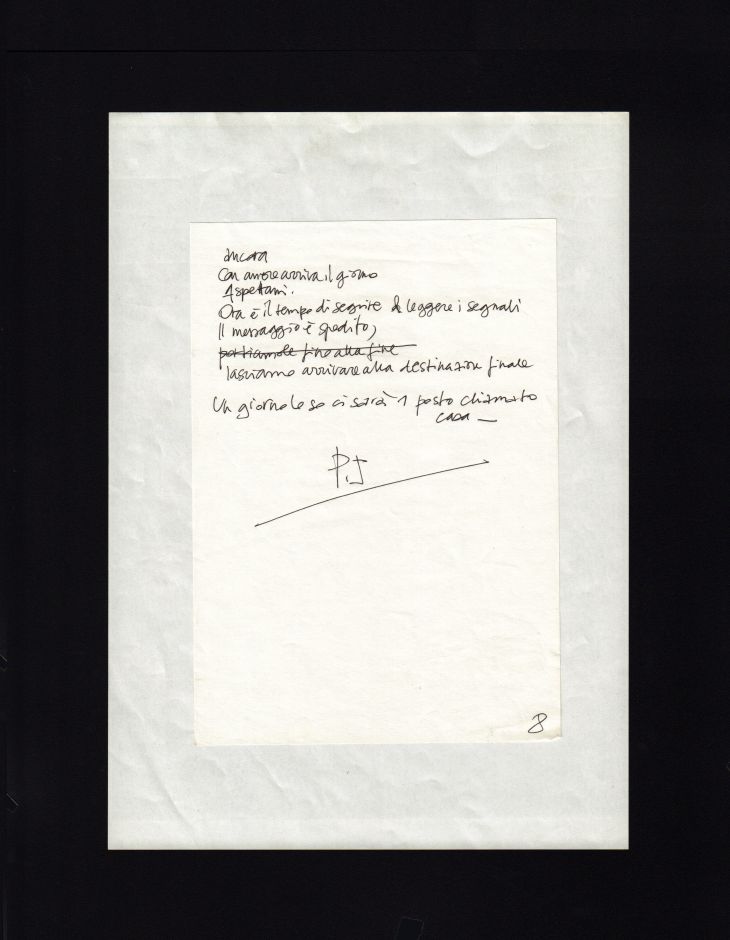 Ancora
Con amore arriva il giorno
Aspettami.
Ora è il tempo di seguire & leggere i segnali
Il messaggio è spedito,
portiamole fino alla fine
lasciamo arrivare alla destinazione finale
Un giorno lo so ci sarà 1 posto chiamato
casa —
P.J
8